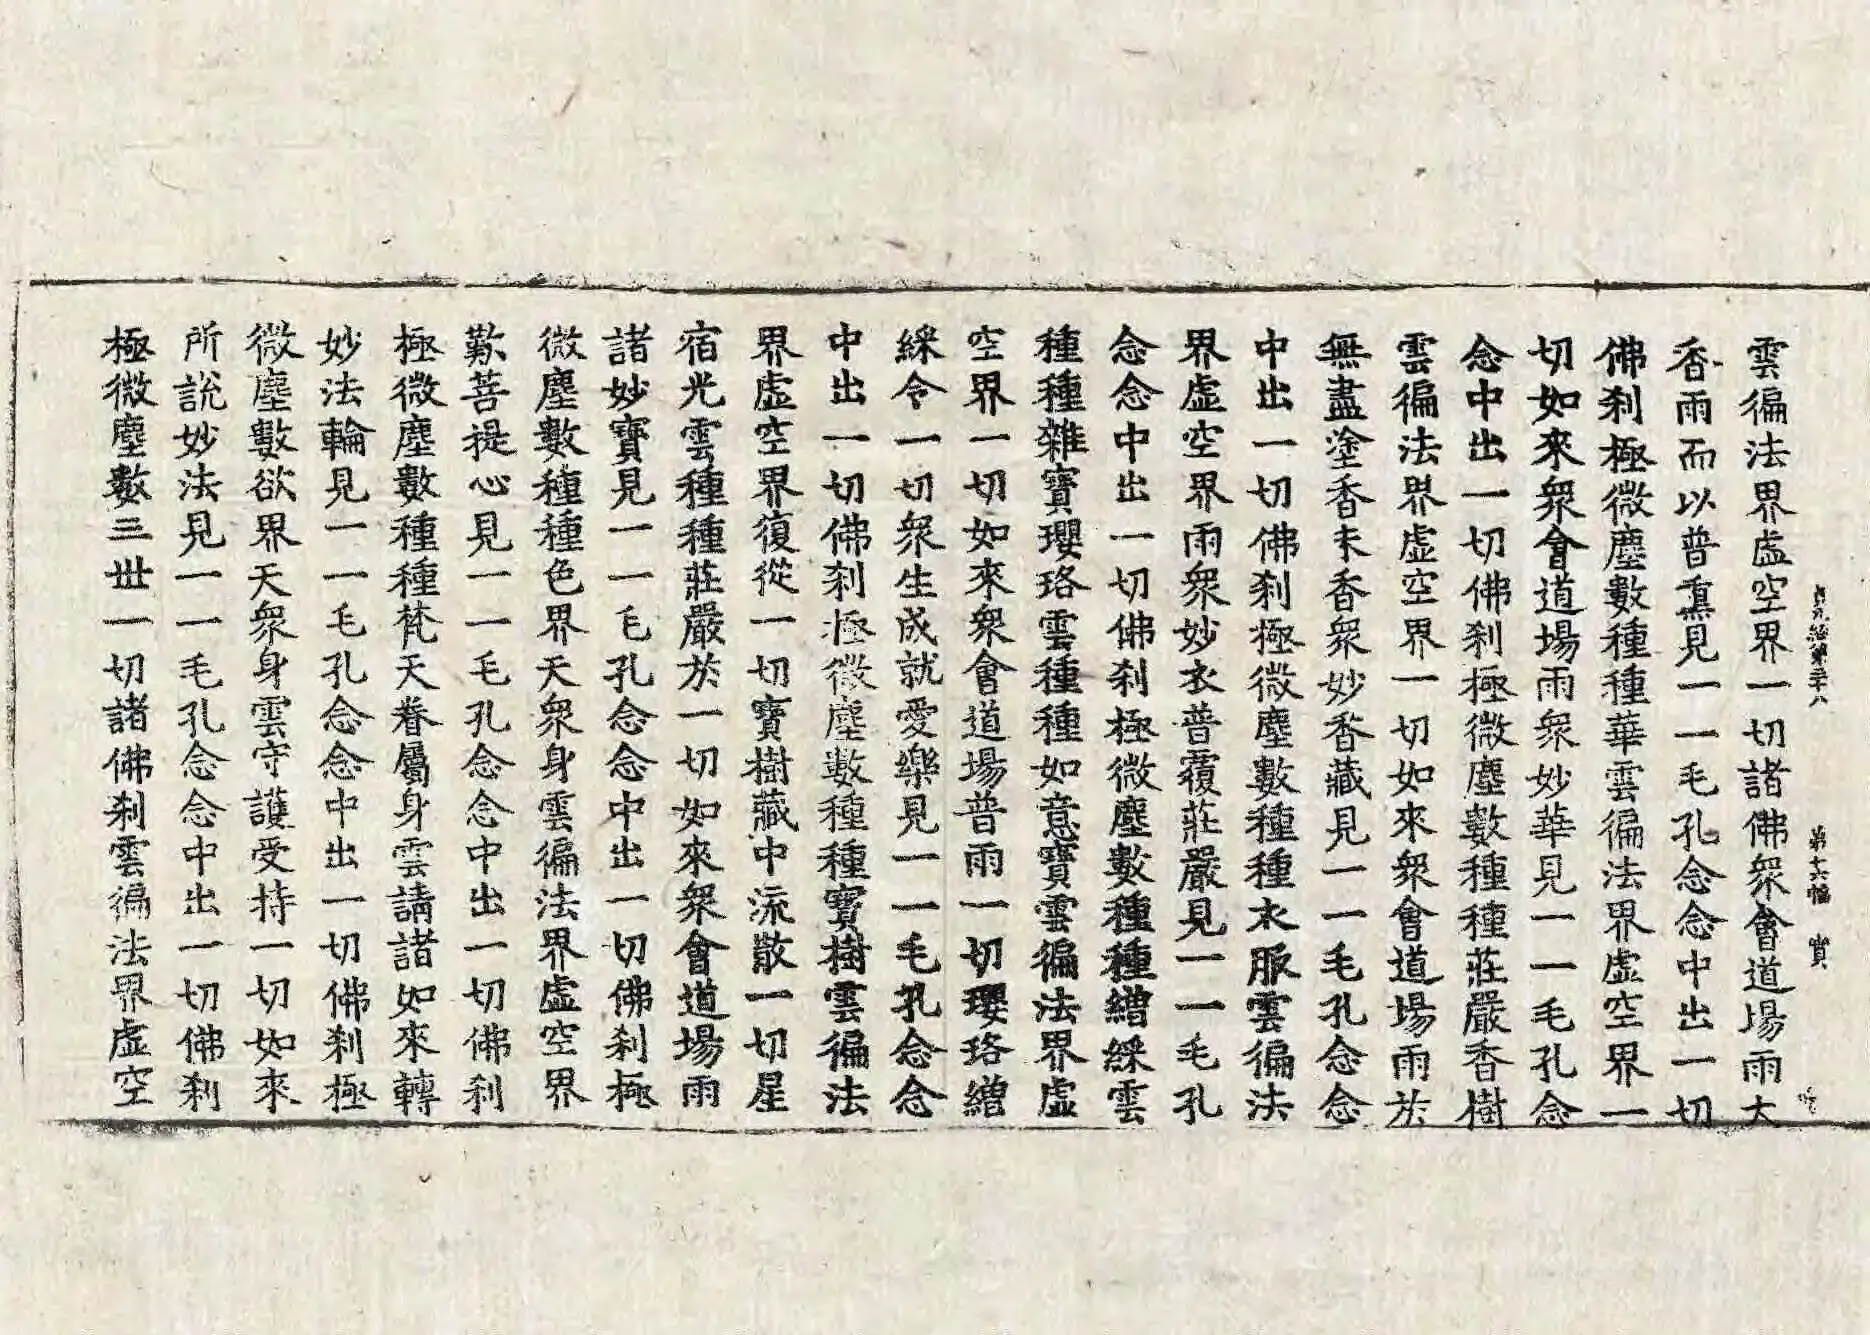 貞元經第三十八　第十六幅　寶
雲徧法界虛空界一切諸佛衆會道場雨大
香雨而以普熏見一一毛孔念念中出一切
佛刹極微塵數種種華雲徧法界虛空界一
切如來衆會道場雨衆妙華見一一毛孔念
念中出一切佛刹極微塵數種種莊嚴香樹
雲徧法界虛空界一切如來衆會道場雨於
無盡塗香末香衆妙香藏見一一毛孔念念
中出一切佛刹極微塵數種種衣服雲徧法
界虛空界雨衆妙衣普覆莊嚴見一一毛孔
念念中出一切佛刹極微塵數種種繒綵雲
種種雜寶瓔珞雲種種如意寶雲徧法界虛
空界一切如來衆會道場普雨一切瓔珞繒
綵令一切衆生成就愛樂見一一毛孔念念
中出一切佛刹極微塵數種種寶樹雲徧法
界虛空界復從一切寶樹藏中流散一切星
宿光雲種種莊嚴於一切如來衆會道場雨
諸妙寶見一一毛孔念念中出一切佛刹極
微塵數種種色界天衆身雲徧法界虛空界
歎菩提心見一一毛孔念念中出一切佛刹
極微塵數種種梵天眷屬身雲請諸如來轉
妙法輪見一一毛孔念念中出一切佛刹極
微塵數欲界天衆身雲守護受持一切如來
所說妙法見一一毛孔念念中出一切佛刹
極微塵數三世一切諸佛刹雲徧法界虛空